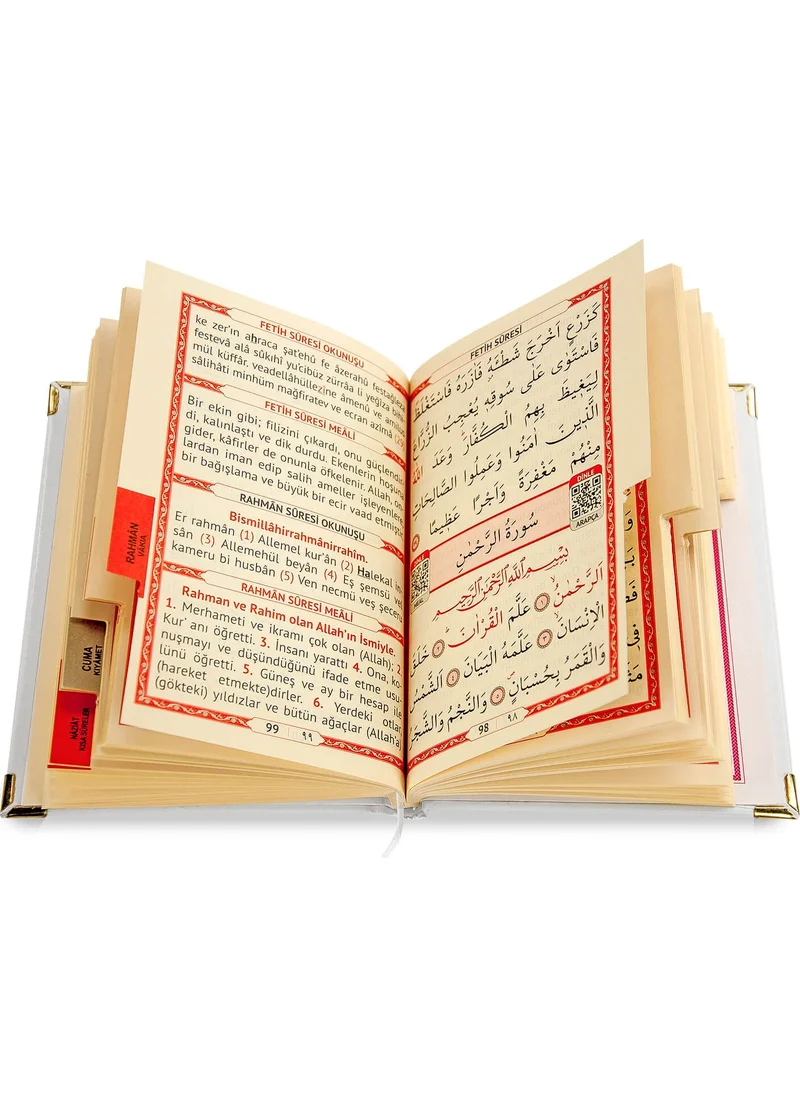 FETİH SÛRESİ
كَزَرْعٍ اَخْرَجَ شَطْـَٔهُ فَاٰزَرَهُ فَاسْتَغْلَظَ
فَاسْتَوٰى عَلٰى سُوقِه۪ يُعْجِبُ الزُّرَّاعَ
لِيَغ۪يظَ بِهِمُ الْكُفَّارَۜ وَعَدَ اللّٰهُ
الَّذ۪ينَ اٰمَنُوا وَعَمِلُوا الصَّالِحَاتِ
مِنْهُمْ مَغْفِرَةً وَاَجْرًا عَظ۪يمًا
DİNLE
ARAPÇA
سُورَةُ الرَّحْمٰنِ
بِسْمِ اللّٰهِ الرَّحْمٰنِ الرَّح۪يمِ
اَلرَّحْمٰنُۙ ﴿١﴾ عَلَّمَ الْقُرْاٰنَۜ ﴿٢﴾ خَلَقَ
الْاِنْسَانَۙ ﴿٣﴾ عَلَّمَهُ الْبَيَانَ ﴿٤﴾ اَلشَّمْسُ
وَالْقَمَرُ بِحُسْبَانٍۙ ﴿٥﴾ وَالنَّجْمُ وَالشَّجَرُ
98 ٩٨
FETİH SÛRESİ OKUNUŞU
ke zer'ın ahraca şat'ehû fe âzerahû festağleza
festevâ alâ sûkıhî yu'cibüz zürrâa li yeğîza bihi
mül küffâr. veadellâhüllezîne âmenû ve amilus
sâlihâti minhüm mağfiratev ve ecran azîmâ (29)
FETİH SÛRESİ MEÂLİ
Bir ekin gibi; filizini çıkardı, onu güçlendir
di, kalınlaştı ve dik durdu. Ekenlerin hoşuna
gider, kâfirler de onunla öfkelenir. Allah, on
lardan iman edip salih ameller işleyenlere
bir bağışlama ve büyük bir ecir vaad etmiştir
RAHMÂN SÛRESİ OKUNUŞU
Bismillâhirrahmânirrahîm.
Er rahmân (1) Allemel kur'ân (2) Halekal in
sân (3) Allemehül beyân (4) Eş şemsü vel
kameru bi husbân (5) Ven necmü veş şeceru
RAHMÂN SÛRESİ MEÂLİ
Rahman ve Rahim olan Allah'ın ismiyle.
1. Merhameti ve ikramı çok olan (Allah); 2.
Kur' anı öğretti. 3. İnsanı yarattı 4. Ona, ko
nuşmayı ve düşündüğünü ifade etme usu
lünü öğretti. 5. Güneş ve ay bir hesap ile
(hareket etmekte)dirler. 6. Yerdeki otlar,
(gökteki) yıldızlar ve bütün ağaçlar (Allah'a)
99 ٩٩
RAHMÂN
VAKIA
CUMA
KIYÂMET
NÂZİÂT
KISA SÛRELER